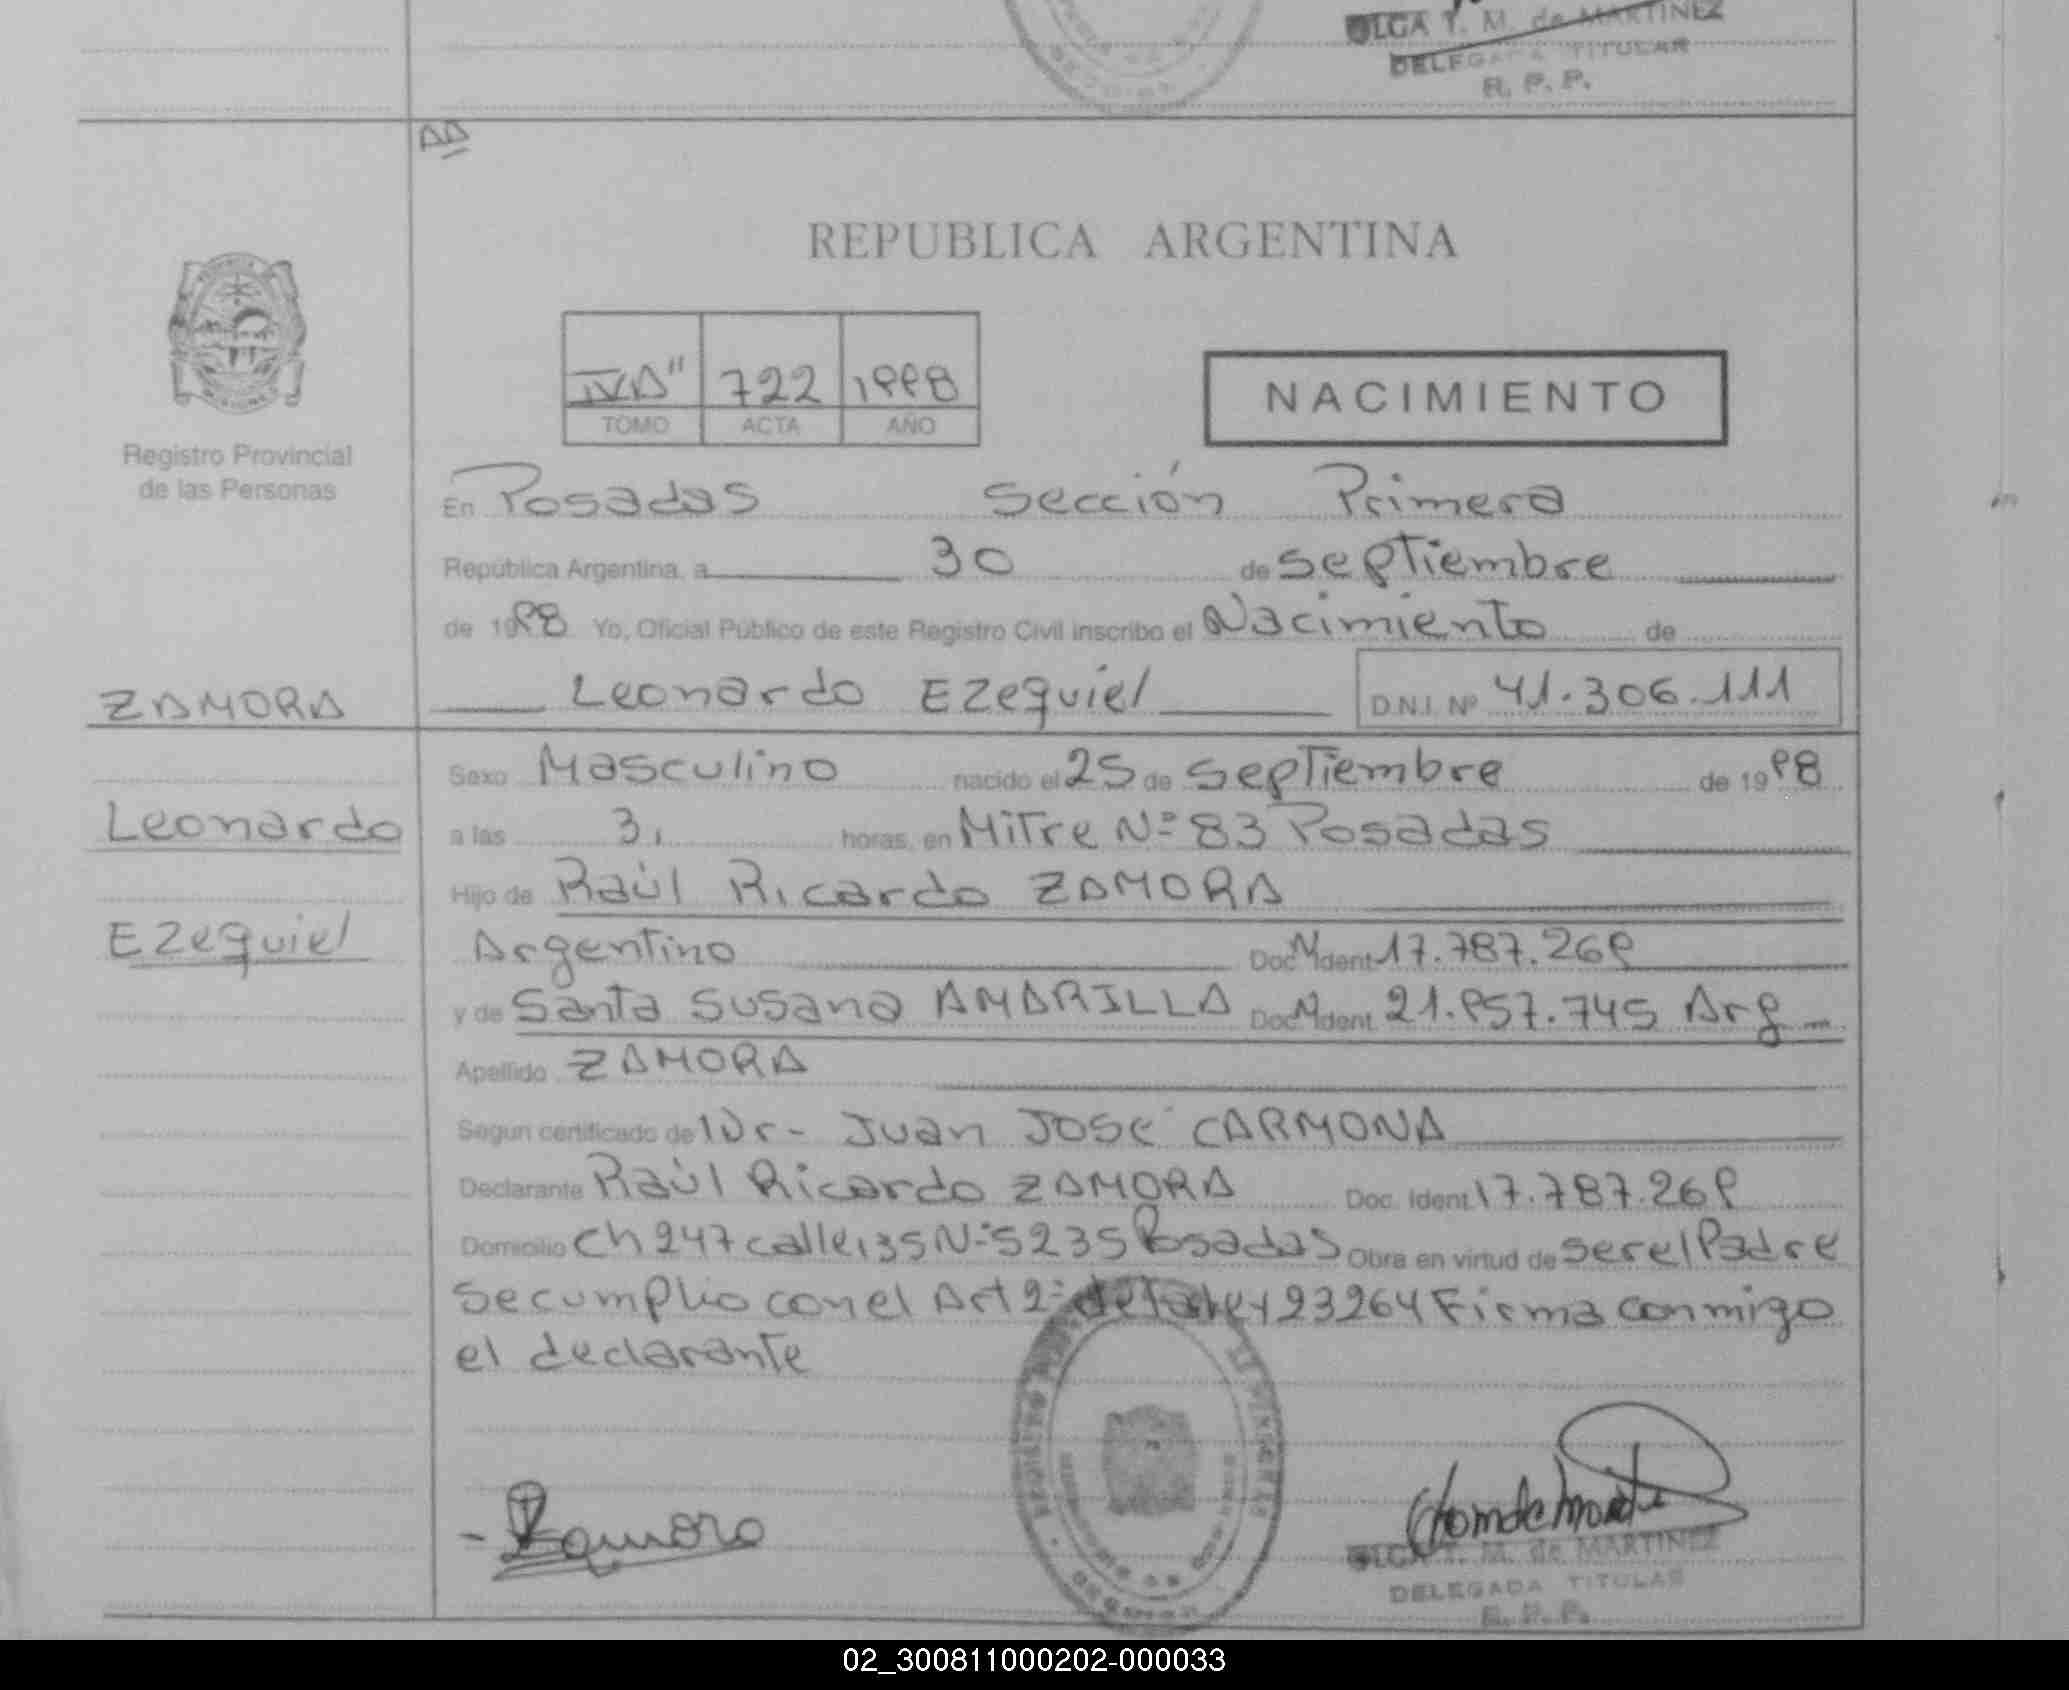 OLGA T. M. de MARTINEZ
DELEGADA TITULAR
R. P. P.
AA
REPUBLICA ARGENTINA
IVA" 722 1998
TOMO ACTA AÑO
NACIMIENTO
Registro Provincial
de las Personas
En Posadas Sección Primera
República Argentina, a 30 de septiembre
de 1998 Yo, Oficial Público de este Registro Civil inscribo el Nacimiento de
ZAMORA
Leonardo Ezequiel D.N.I. Nº 41.306.111
Sexo Masculino nacido el 25 de septiembre de 1998
Leonardo
a las 3, horas, en Mitre Nº 83 Posadas
Hijo de Raúl Ricardo ZAMORA
Ezequiel
Argentino Doc N Ident 17.787.269
y de Santa Susana AMARILLA Doc N Ident 21.957.745 Arg
Apellido ZAMORA
Segun certificado de Dr- Juan José CARMONA
Declarante Raúl Ricardo ZAMORA Doc. Ident 17.787.269
Domicilio Ch 247 calle 135 Nº 5235 Posadas Obra en virtud de ser el Padre
se cumplio con el Art 2º de la Ley 23264 Firma conmigo
el declarante
Zamora
OLGA T. M. de MARTINEZ
DELEGADA TITULAR
R. P. P.
02_300811000202-000033